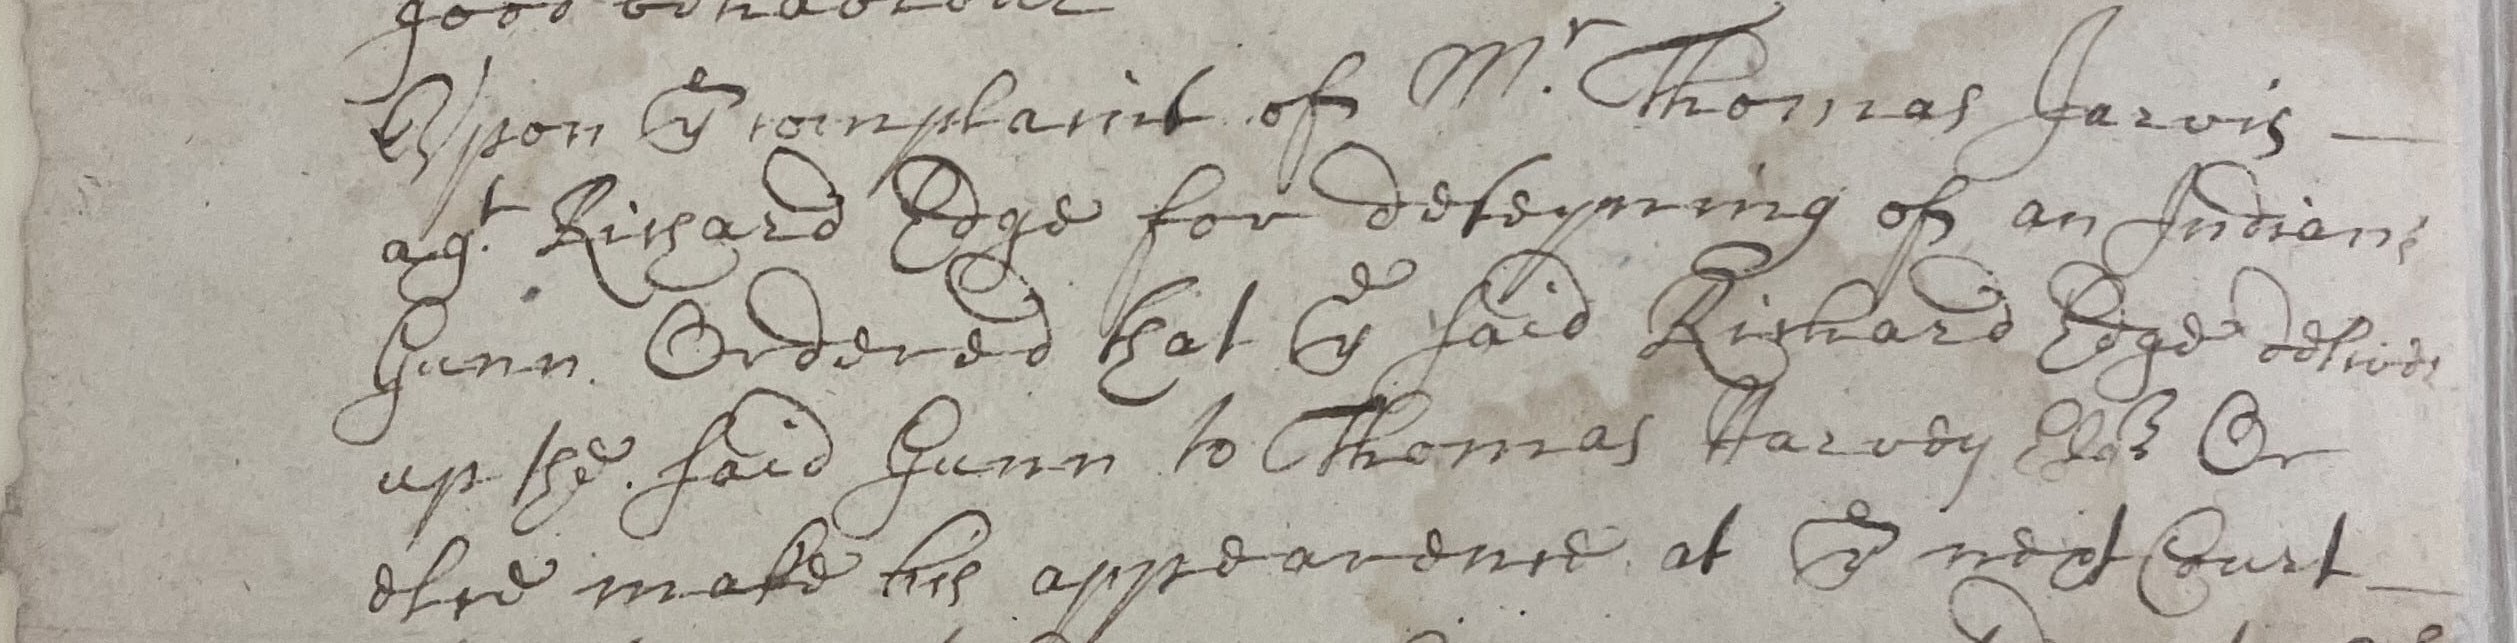 good behaviour
Upon ye complaint of Mr. Thomas Jarvis —
agt. Richard Edge for deteyning of an Indians
Gunn. Ordered that ye said Richard Edge deliver
up the said Gunn to Thomas Harvey Esqr Or
else make his appearence at ye next Court —